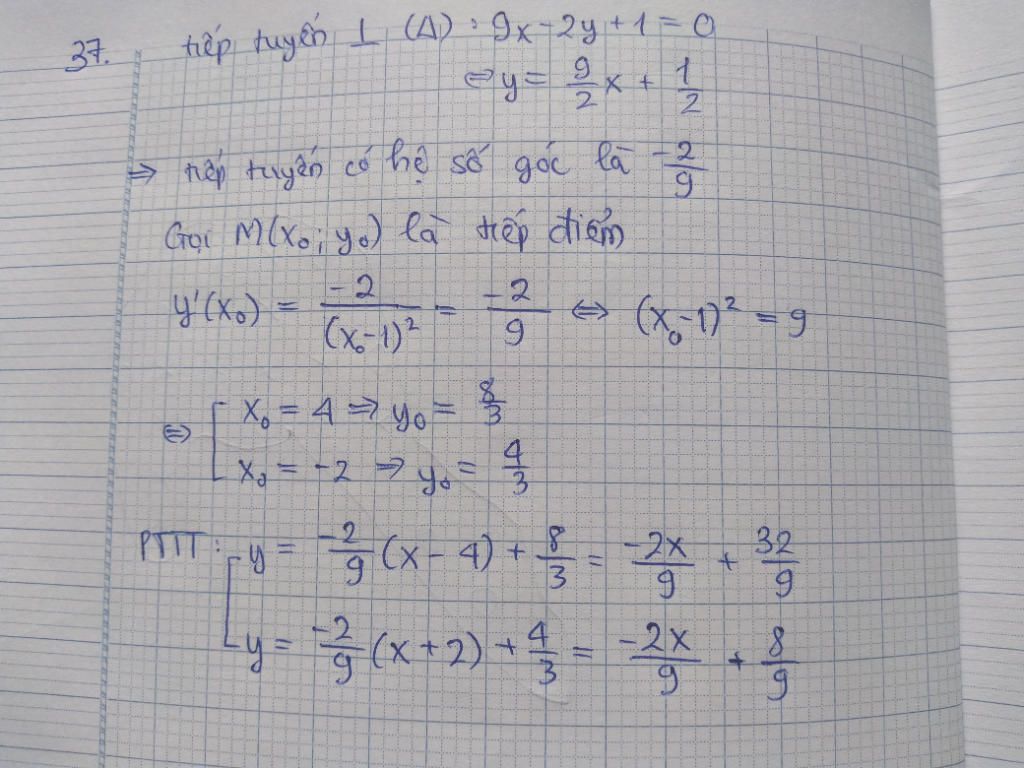 37. tiếp tuyến ⊥ (Δ): 9x - 2y + 1 = 0
⇔ y = 9/2 x + 1/2
⇒ tiếp tuyến có hệ số góc là -2/9
Gọi M(x₀; y₀) là tiếp điểm
y'(x₀) = -2/(x₀-1)² = -2/9 ⇔ (x₀-1)² = 9
⇔ [ x₀ = 4 ⇒ y₀ = 8/3
x₀ = -2 ⇒ y₀ = 4/3
PTTT: [ y = -2/9 (x - 4) + 8/3 = -2x/9 + 32/9
y = -2/9 (x + 2) + 4/3 = -2x/9 + 8/9